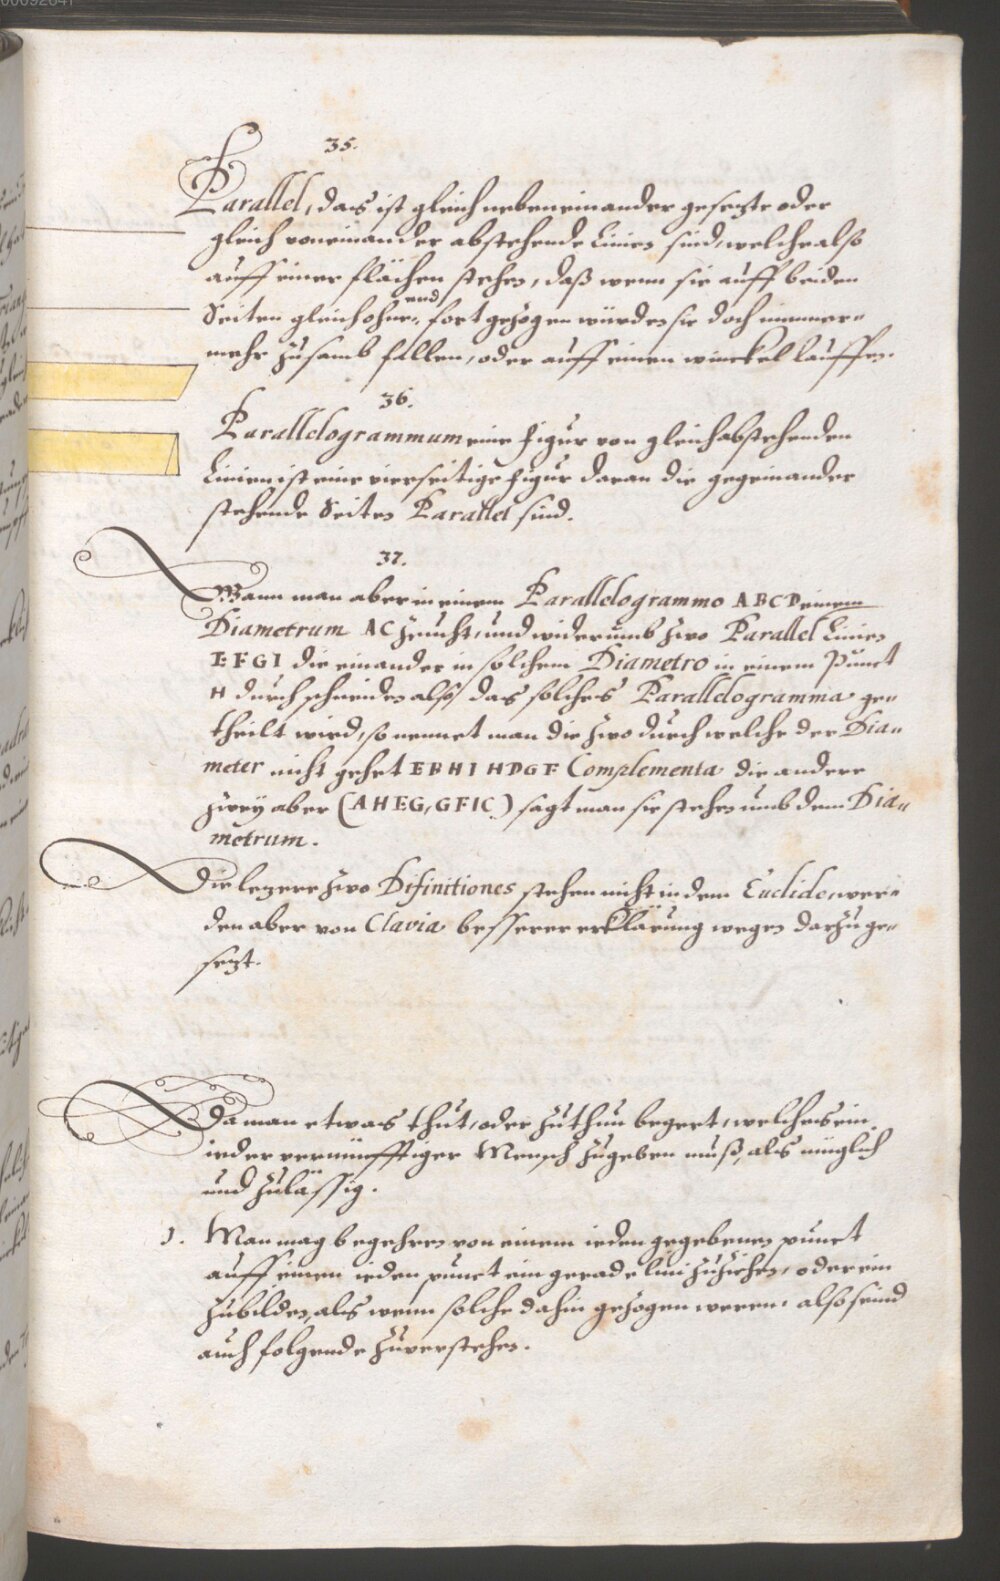 35.
Parallel, das ist gleich nebeneinander gesezte oder
gleich voneinander abstehende Linien sind, welche also
auff einer flächen stehen, daß wenn sie auff beiden
Seiten gleich ohne end fort gezogen würden sie doch nimmer-
mehr zusamb fallen, oder auff einen winckel lauffen.
36.
Parallelogrammum eine figur von gleichabstehenden
Linien ist eine vierseitige figur daran die gegeneinander
stehende Seiten Parallel sind.
37.
Wann man aber in einem Parallelogrammo ABCD einem
Diametrum AC zeucht, und widerumb zwo Parallel Linien
EFGI die einander in solchem Diametro in einem Punct
H durchschneiden also das solches Parallelogramma ge-
theilt wird, so nennet man die zwo durch welche der Dia-
meter nicht gehet EBHI HDGF Complementa die andere
zwey aber (AHEG, GFIC) sagt man sie stehen umb dem Dia-
metrum.
Die lezere zwo Difinitiones stehen nicht in dem Euclide, wer-
den aber von Clavia besserer erklärung wegen darzu ge-
sezt.
Da man etwas thut, oder zuthun begert, welches ein
ieder vernünfftiger Mensch zugeben muß, als müglich
und zuläßig.
1. Man mag begehren von einem ieden gegebenen punct
auff einen ieden punct ein gerade lini zuziehen, oder ein
zubilden, als wenn solche dahin gezogen weren, also seind
auch folgende zuverstehen.